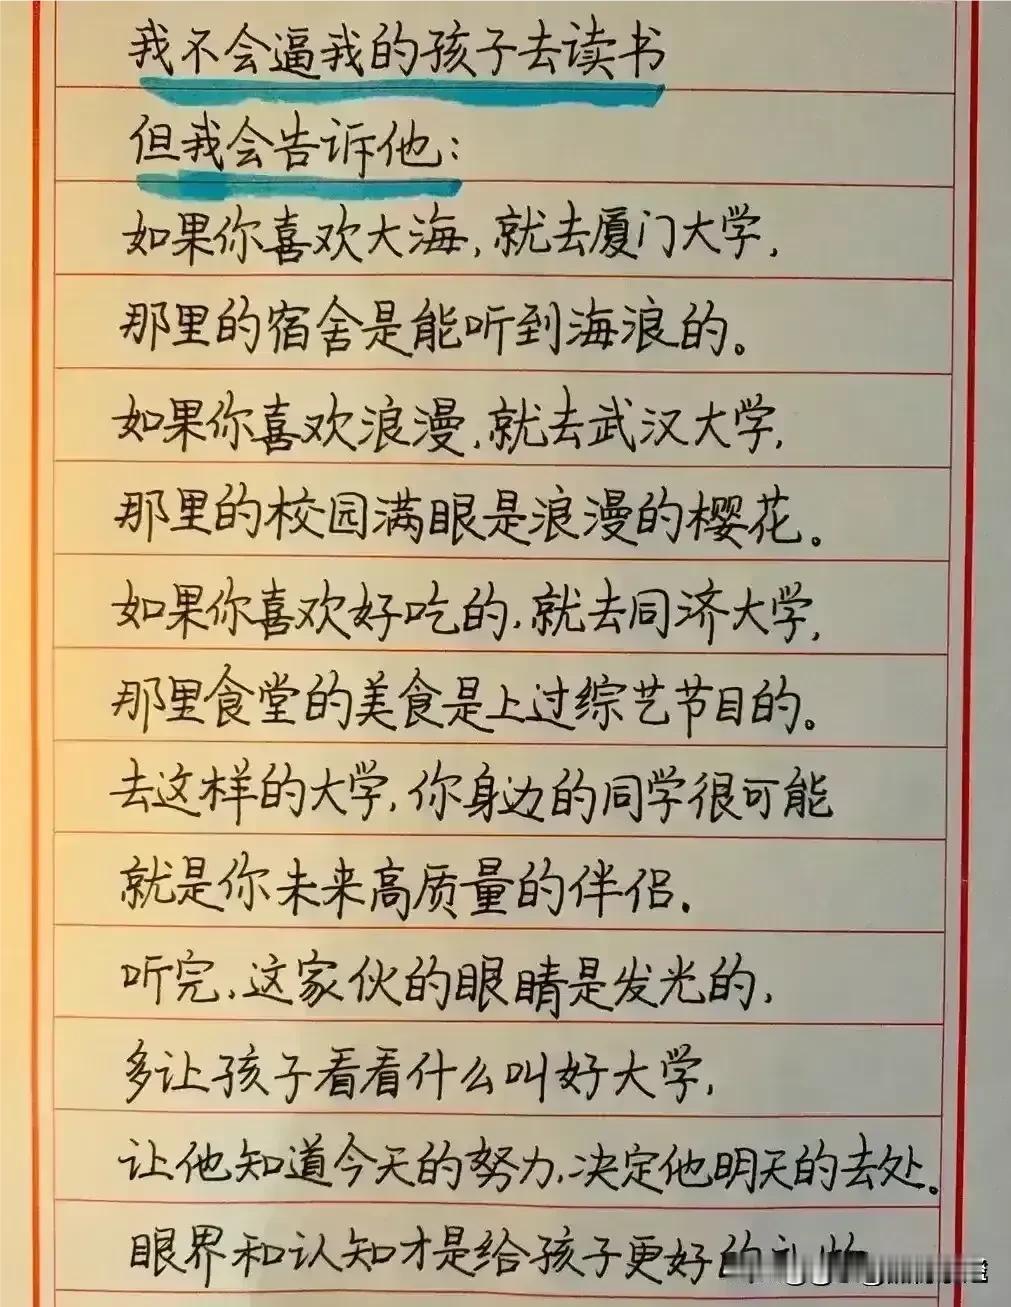 我不会逼我的孩子去读书
但我会告诉他：
如果你喜欢大海,就去厦门大学,
那里的宿舍是能听到海浪的。
如果你喜欢浪漫,就去武汉大学,
那里的校园满眼是浪漫的樱花。
如果你喜欢好吃的,就去同济大学,
那里食堂的美食是上过综艺节目的。
去这样的大学,你身边的同学很可能
就是你未来高质量的伴侣.
听完,这家伙的眼睛是发光的,
多让孩子看看什么叫好大学,
让他知道今天的努力,决定他明天的去处。
眼界和认知才是给孩子更好的